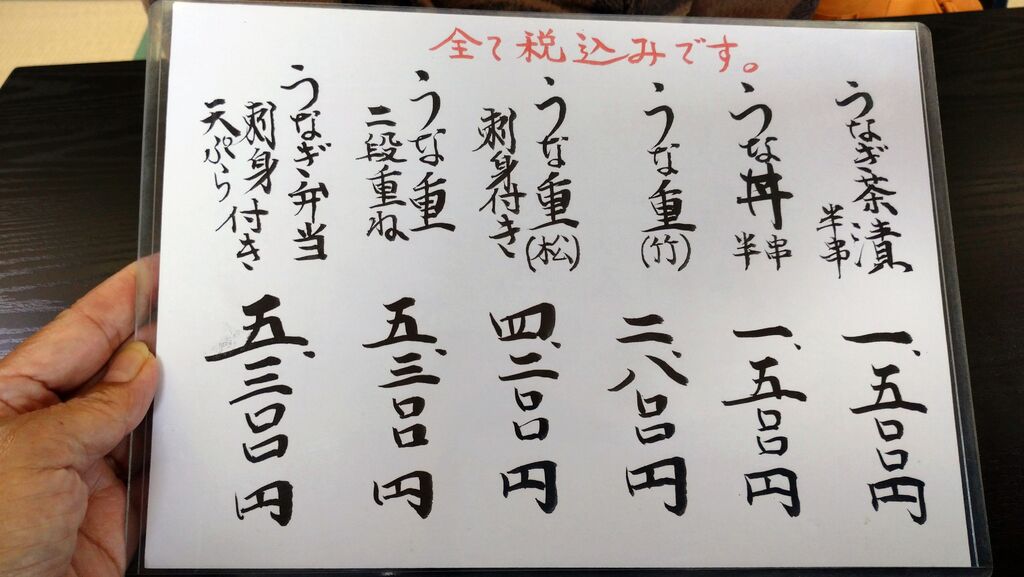 全て税込みです。
うなぎ茶漬
半串
一、五〇〇円
うな丼
半串
一、五〇〇円
うな重
(竹)
二、八〇〇円
うな重
(松)
刺身付き
四、二〇〇円
うな重
二段重ね
五、三〇〇円
うなぎ弁当
刺身付き
天ぷら
五、三〇〇円